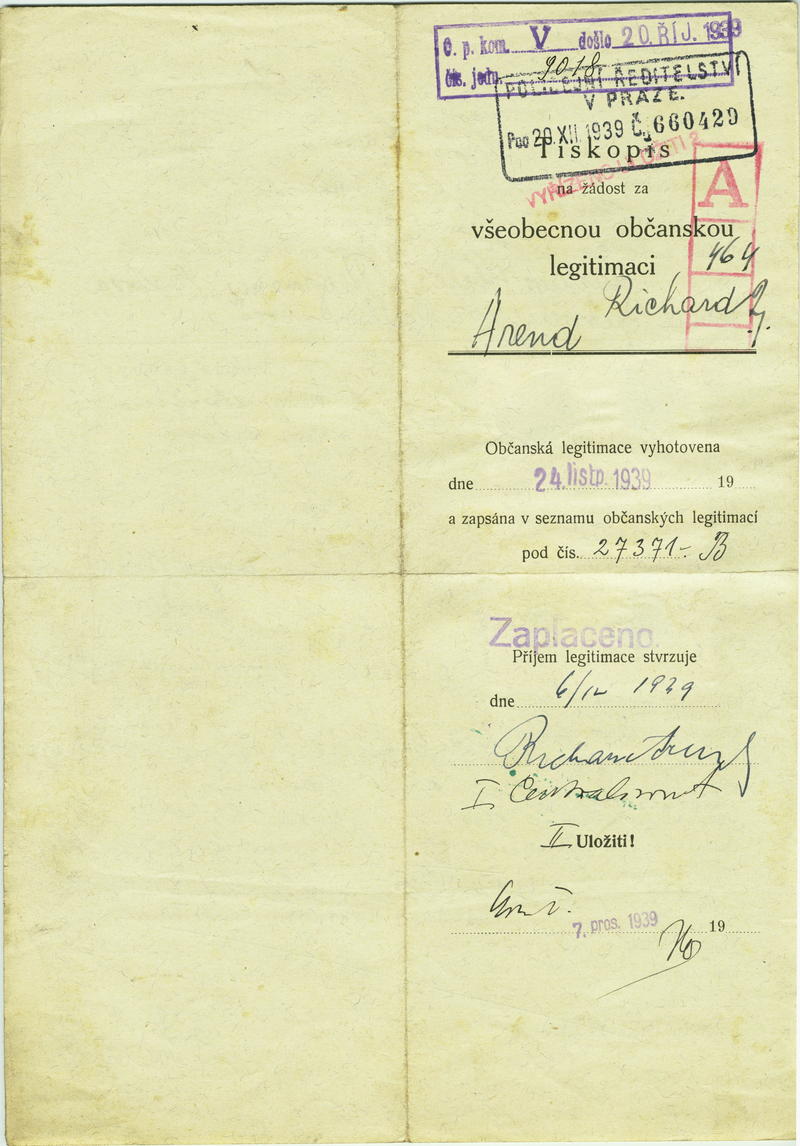 O. p. kom. V došlo 20. ŘÍJ. 1939
čís. jedn. 9018
POLICEJNÍ ŘEDITELSTVÍ
V PRAZE.
29. XII. 1939 Č. 660429
Tiskopis
na žádost za
všeobecnou občanskou
legitimaci
A
464
Richard
Arend
Občanská legitimace vyhotovena
dne 24. listp. 1939 19
a zapsána v seznamu občanských legitimací
pod čís. 27371-B
Zaplaceno.
Příjem legitimace stvrzuje
dne 6/12 1939
Richard Arend
I
II Uložiti!
7. pros. 1939 19